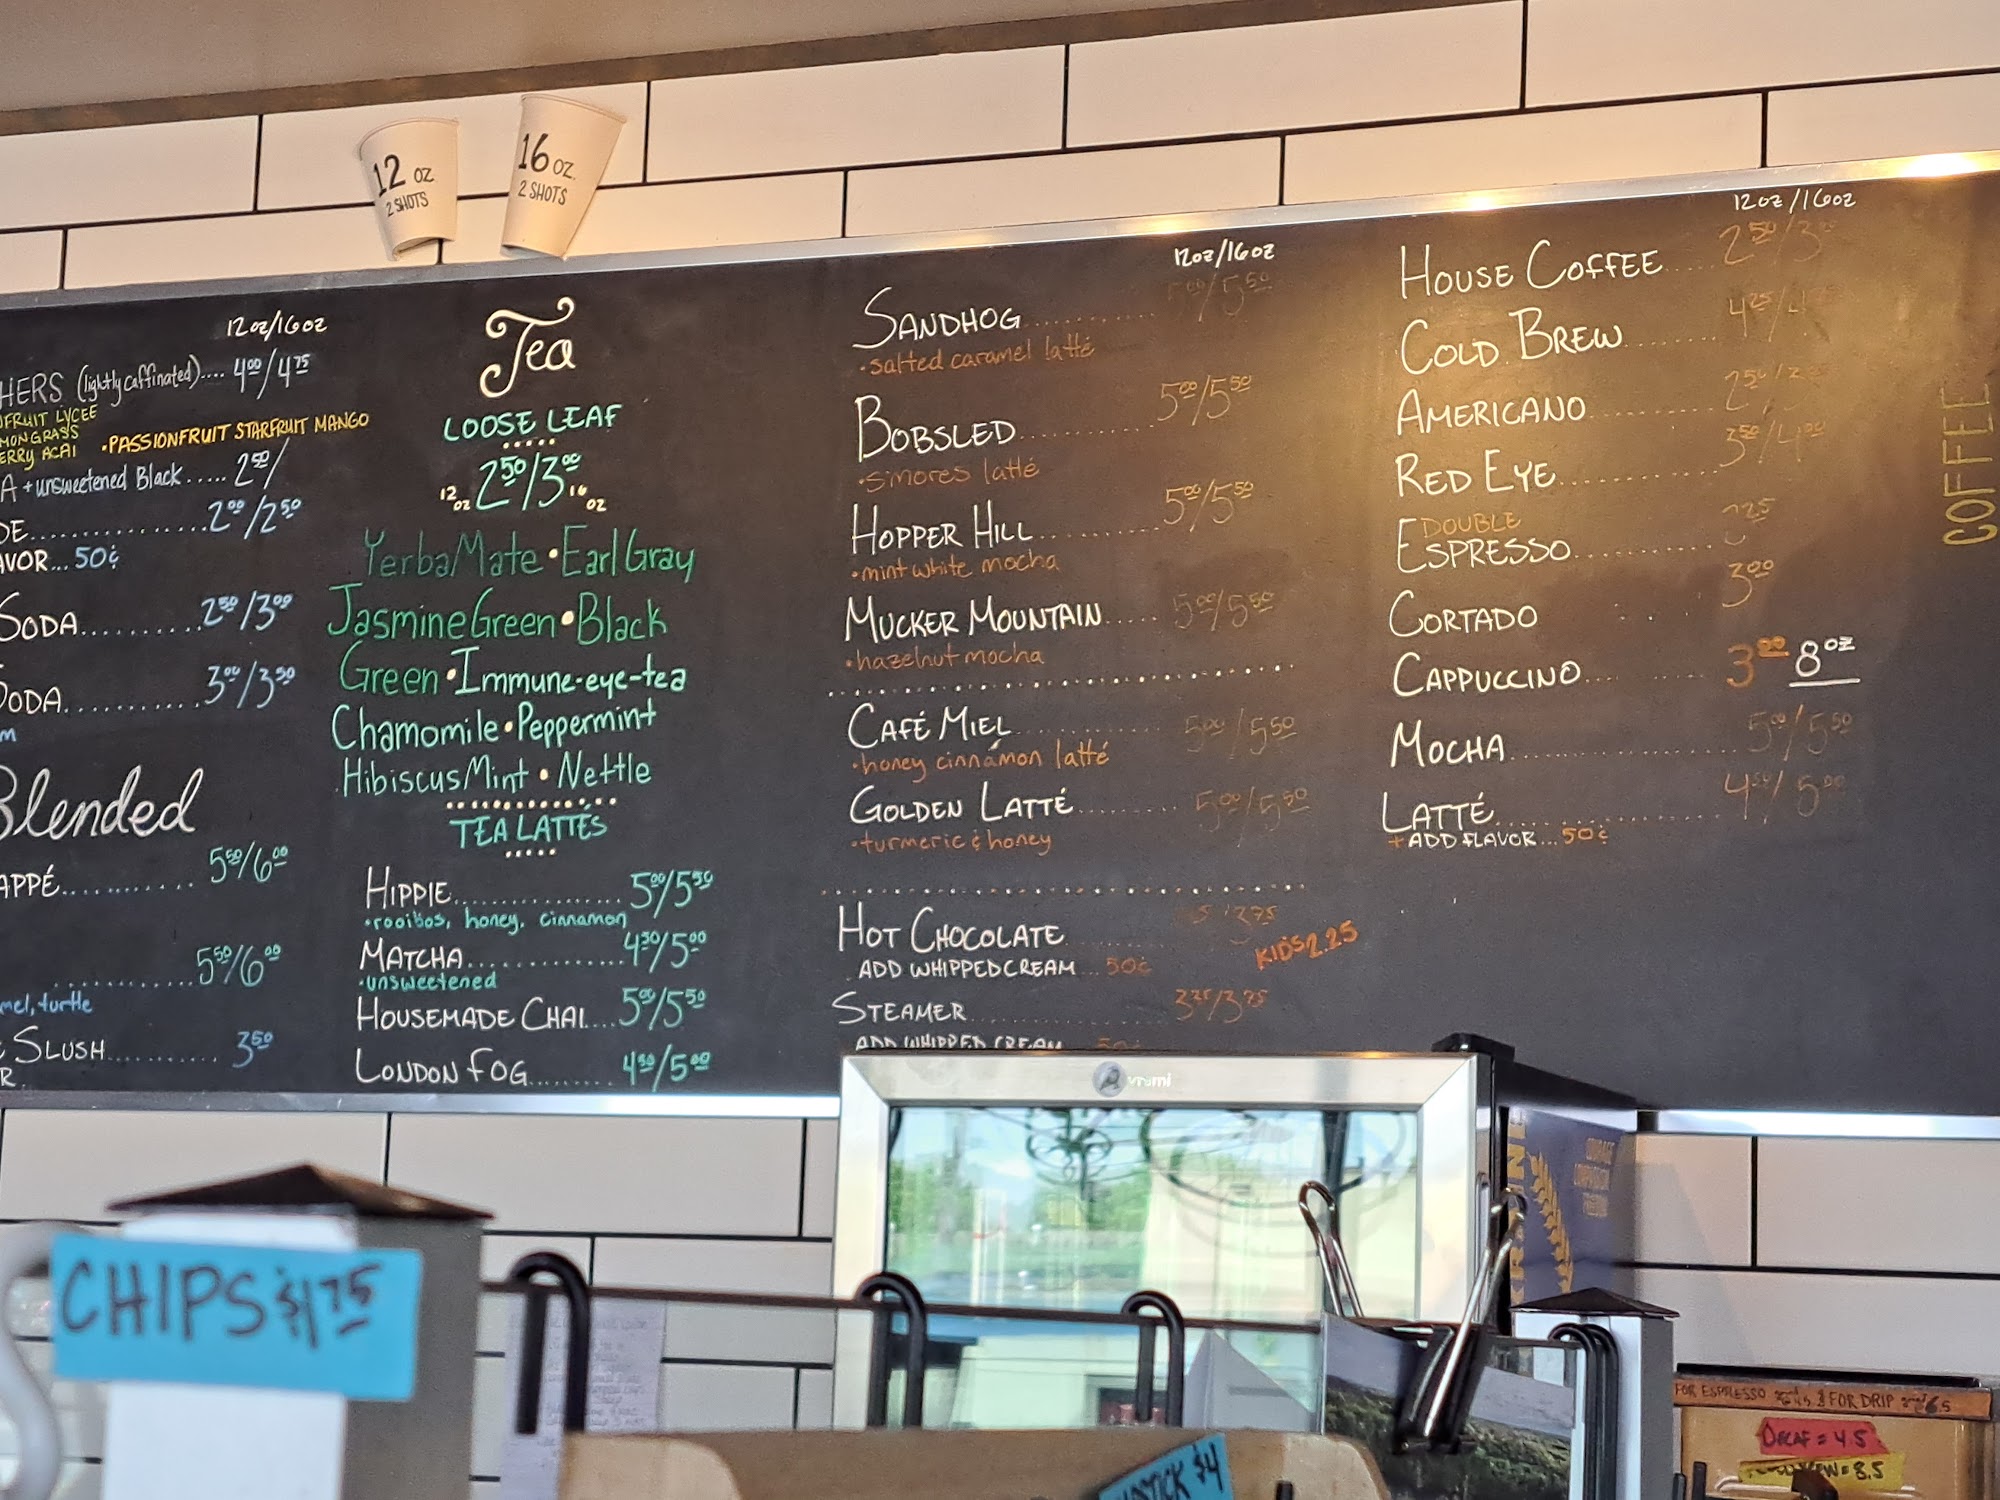 12 OZ
2 SHOTS
16 OZ.
2 SHOTS
12oz/16oz
HERS (lightly caffinated).... 4⁰⁰/4⁷⁵
FRUIT LYCEE
MONGRASS
ERRY ACAI •PASSIONFRUIT STARFRUIT MANGO
A + unsweetened Black..... 2⁵⁰/
DE.............2⁰⁰/2⁵⁰
AVOR... 50¢
SODA..........2⁵⁰/3⁰⁰
SODA...........3⁰⁰/3⁵⁰
m
Blended
APPÉ........... 5⁵⁰/6⁰⁰
...........5⁵⁰/6⁰⁰
mel, turtle
SLUSH.......... 3⁵⁰
R
Tea
LOOSE LEAF
12 oz 2⁵⁰/3⁰⁰ 16 oz
Yerba Mate • Earl Gray
Jasmine Green • Black
Green • Immune-eye-tea
Chamomile • Peppermint
Hibiscus Mint • Nettle
TEA LATTÉS
HIPPIE................5⁰⁰/5⁵⁰
•rooibos, honey, cinnamon
MATCHA...............4⁵⁰/5⁰⁰
•unsweetened
HOUSEMADE CHAI....5⁰⁰/5⁵⁰
LONDON FOG........ 4⁵⁰/5⁰⁰
12oz/16oz
SANDHOG............ 5⁰⁰/5⁵⁰
•salted caramel latté
BOBSLED............ 5⁰⁰/5⁵⁰
•s'mores latté
HOPPER HILL.......... 5⁰⁰/5⁵⁰
•mint white mocha
MUCKER MOUNTAIN..... 5⁰⁰/5⁵⁰
•hazelnut mocha
CAFÉ MIEL............ 5⁰⁰/5⁵⁰
•honey cinnamon latté
GOLDEN LATTÉ......... 5⁰⁰/5⁵⁰
•turmeric & honey
HOT CHOCOLATE
KIDS 2.25
ADD WHIPPED CREAM... 50¢
STEAMER.................. 3²⁵/3⁷⁵
ADD WHIPPED CREAM 50¢
12oz/16oz
HOUSE COFFEE..... 2⁵⁰/3⁰⁰
COLD BREW......... 4²⁵/4
AMERICANO........... 2⁵⁰/3
RED EYE.............. 3⁵⁰/4⁰⁰
DOUBLE
ESPRESSO..............
CORTADO 3⁰⁰
CAPPUCCINO.... 3⁰⁰ 8oz
MOCHA................. 5⁰⁰/5⁵⁰
LATTÉ................. 4⁵⁰/5⁰⁰
+ADD FLAVOR...50¢
COFFEE
vremi
CHIPS $1.75
STICK $4
FOR ESPRESSO FOR DRIP
DECAF = 4.5
= 8.5